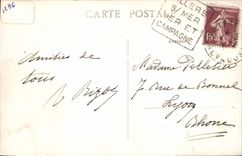 1296
CARTE POSTALE
VILLERS
S/MER
MER ET
CAMPAGNE
15
Amities de
tous
Madame Pelletier
7 rue de Bonnel
Lyon
Rhone